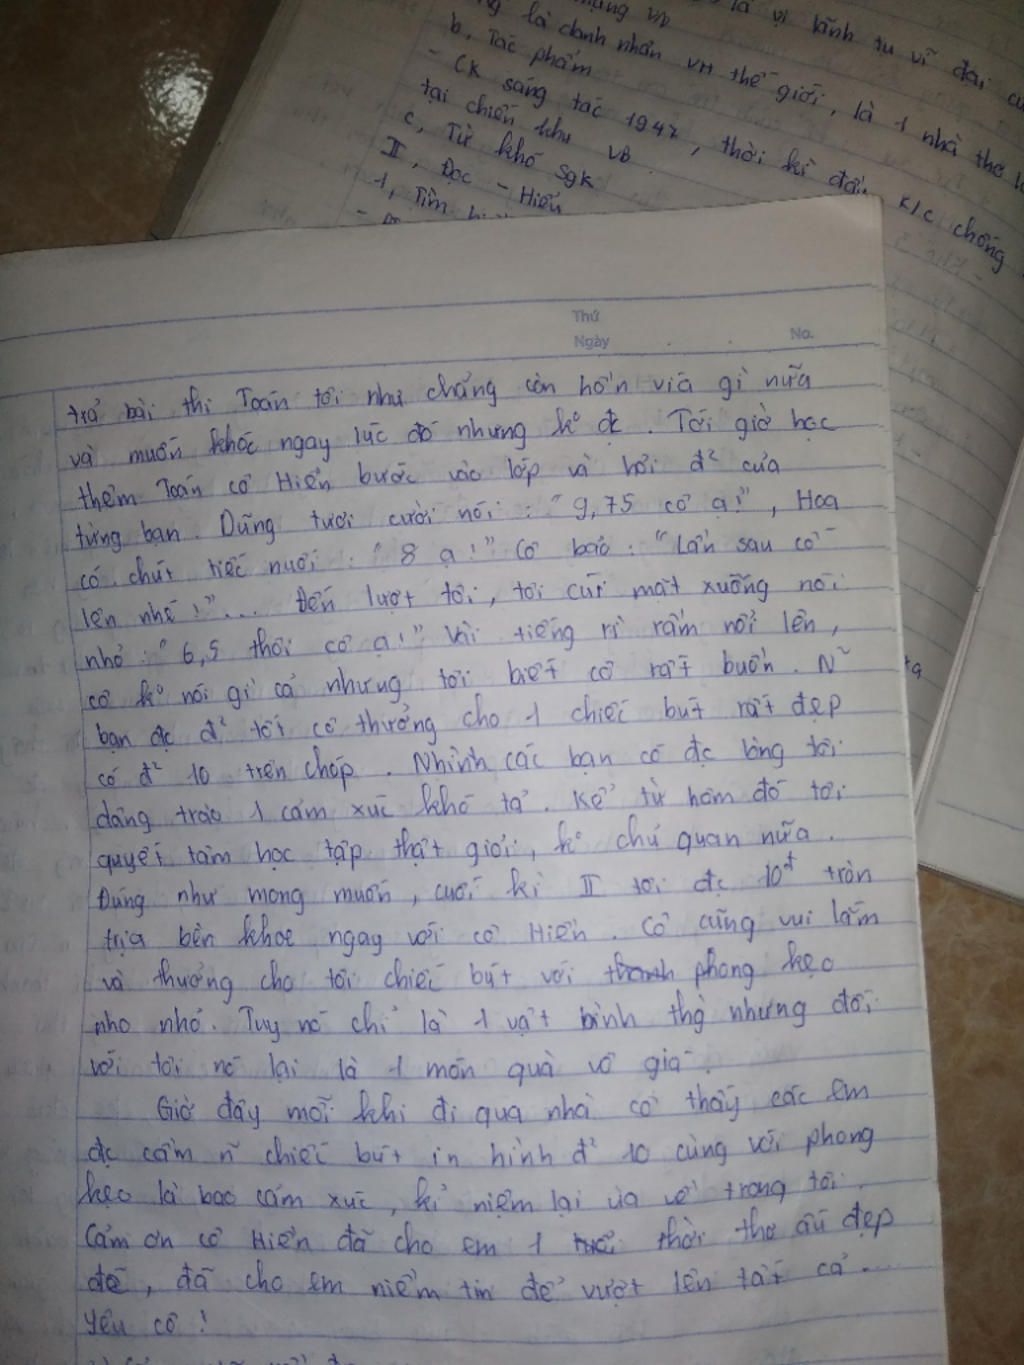 là vị lãnh tụ vĩ đại
là danh nhân VH thế giới, là 1 nhà thơ
b, Tác phẩm
- CK sáng tác 1947, thời kì đầu K/c chống
tại chiến khu VB
c, Từ khó sgk
II, Đọc - Hiểu
1, Tìm
Thứ
Ngày
No.
trả bài thi Toán tôi như chẳng còn hồn vía gì nữa
và muốn khóc ngay lúc đó nhưng k° đc. Tới giờ học
thêm Toán cô Hiền bước vào lớp và hỏi đ² của
từng bạn. Dũng tươi cười nói: "9,75 cô ạ!", Hoa
có chút tiếc nuối: "8 ạ!" Cô bảo: "Lần sau cố
lên nhé!"... Đến lượt tôi, tôi cúi mặt xuống nói
nhỏ: "6,5 thôi cô ạ!" Vài tiếng rì rầm nổi lên,
cô k° nói gì cả nhưng tôi biết cô rất buồn. N~
bạn đc đ² tốt cô thưởng cho 1 chiếc bút rất đẹp
có đ² 10 trên chóp. Nhình các bạn có đc lòng tôi
dâng trào 1 cảm xúc khó tả. Kể từ hôm đó tôi
quyết tâm học tập thật giỏi, k° chủ quan nữa.
Đúng như mong muốn, cuối kì II tôi đc 10đ tròn
trịa bèn khoe ngay với cô Hiền. Cô cũng vui lắm
và thưởng cho tôi chiếc bút với phong kẹo
nho nhỏ. Tuy nó chỉ là 1 vật bình thg nhưng đối
với tôi nó lại là 1 món quà vô giá.
Giờ đây mỗi khi đi qua nhà cô thấy các em
đc cầm n~ chiếc bút in hình đ² 10 cùng với phong
kẹo là bao cảm xúc, kỉ niệm lại ùa về trong tôi.
Cảm ơn cô Hiền đã cho em 1 thời thơ ấu đẹp
đẽ, đã cho em niềm tin để vượt lên tất cả...
Yêu cô!